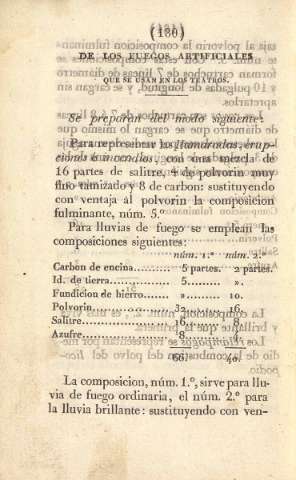 (180)
DE LOS FUEGOS ARTIFICIALES
QUE SE USAN EN LOS TEATROS.
Se preparan del modo siguiente:
Para representar las llamaradas, erup-
ciones é incendios, con una mezcla de
16 partes de salitre, 4 de polvorin muy
fino tamizado y 8 de carbon: sustituyendo
con ventaja al polvorin la composicion
fulminante, núm. 5.º
Para lluvias de fuego se emplean las
composiciones siguientes:
núm. 1.º núm. 2.º
Carbon de encina......... 5 partes. 2 partes.
Id. de tierra............. 5 ».
Fundicion de hierro...... » 10.
Polvorin................. 32 16
Salitre.................. 16 8
Azufre................... 8 4.
66. 40.
La composicion, núm. 1.º, sirve para llu-
via de fuego ordinaria, el núm. 2.º para
la lluvia brillante: sustituyendo con ven-